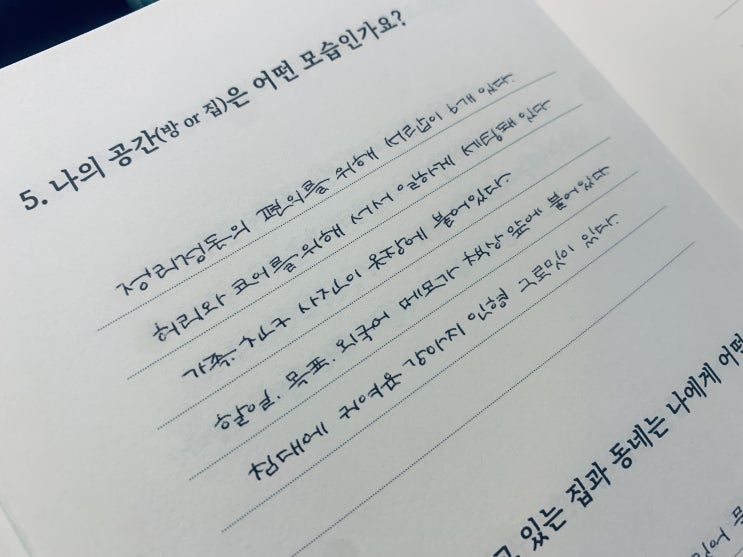 5. 나의 공간(방 or 집)은 어떤 모습인가요?
정리정돈의 편의를 위해 서랍이 9개 있다.
허리와 코어를 위해 서서 일하게 세팅해 놨다
가족. 친구 사진이 옷장에 붙어있다.
할일. 목표. 외국어 메모가 책상 앞에 붙어있다
침대에 귀여운 강아지 인형 구르밋이 있다.
있는 집과 동네는 나에게 어떤